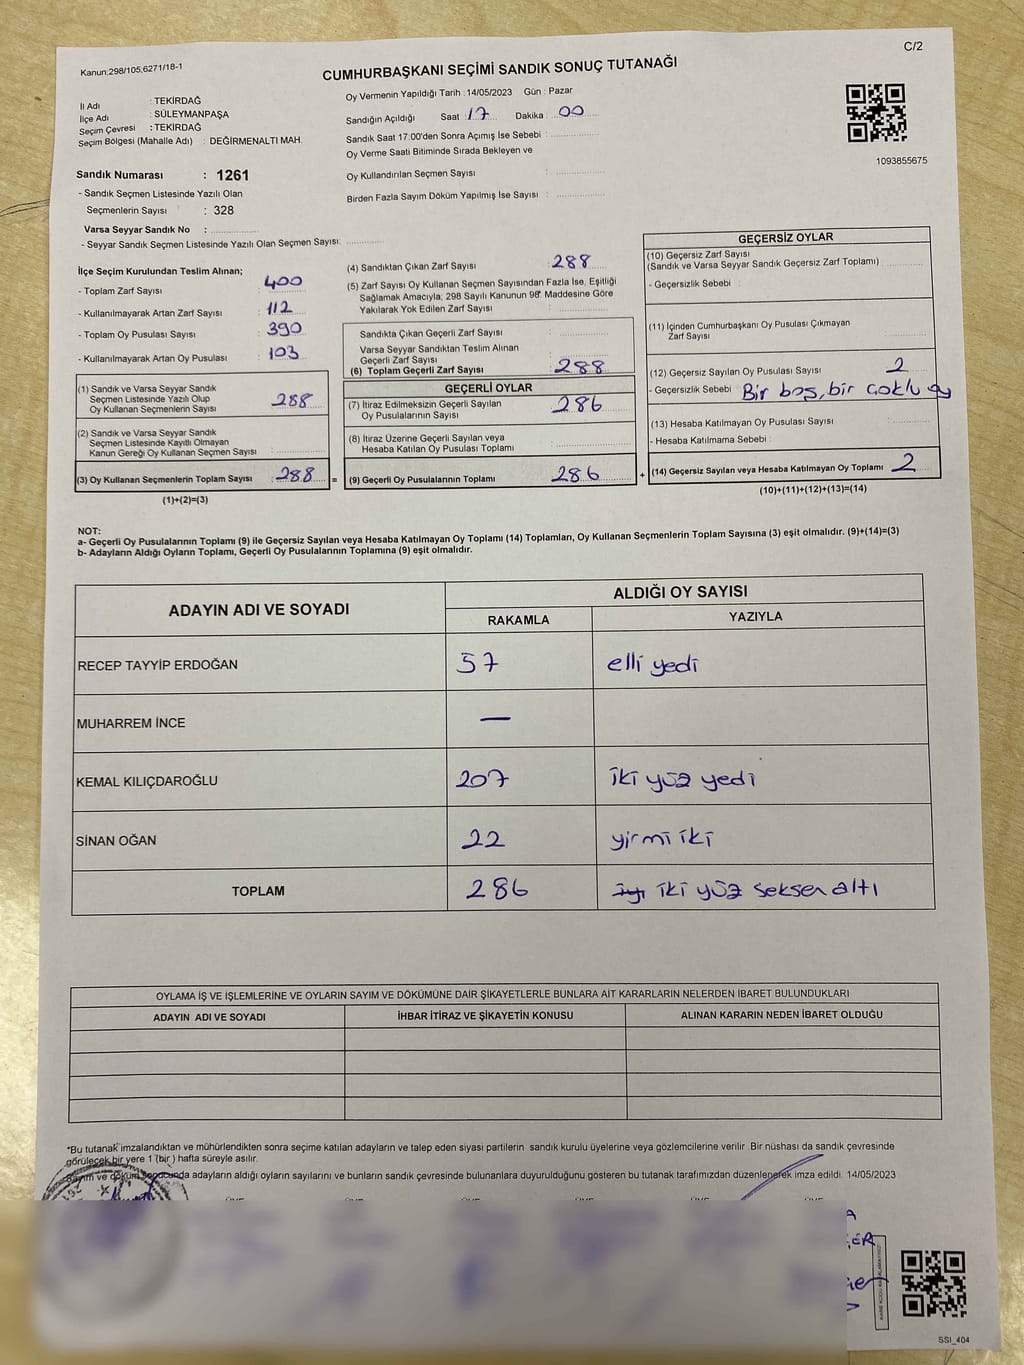 C/2
Kanun;298/105;6271/18-1
CUMHURBAŞKANI SEÇİMİ SANDIK SONUÇ TUTANAĞI
İl Adı : TEKİRDAĞ
İlçe Adı : SÜLEYMANPAŞA
Seçim Çevresi : TEKİRDAĞ
Seçim Bölgesi (Mahalle Adı) : DEĞİRMENALTI MAH.
Sandık Numarası : 1261
- Sandık Seçmen Listesinde Yazılı Olan
Seçmenlerin Sayısı : 328
Varsa Seyyar Sandık No :
- Seyyar Sandık Seçmen Listesinde Yazılı Olan Seçmen Sayısı:
Oy Vermenin Yapıldığı Tarih : 14/05/2023 Gün : Pazar
Sandığın Açıldığı Saat : 17 Dakika : 00
Sandık Saat 17:00'den Sonra Açımış İse Sebebi :
Oy Verme Saati Bitiminde Sırada Bekleyen ve
Oy Kullandırılan Seçmen Sayısı :
Birden Fazla Sayım Döküm Yapılmış İse Sayısı :
1093855675
İlçe Seçim Kurulundan Teslim Alınan;
- Toplam Zarf Sayısı : 400
- Kullanılmayarak Artan Zarf Sayısı : 112
- Toplam Oy Pusulası Sayısı : 390
- Kullanılmayarak Artan Oy Pusulası : 103
(1) Sandık ve Varsa Seyyar Sandık
Seçmen Listesinde Yazılı Olup
Oy Kullanan Seçmenlerin Sayısı : 288
(2) Sandık ve Varsa Seyyar Sandık
Seçmen Listesinde Kayıtlı Olmayan
Kanun Gereği Oy Kullanan Seçmen Sayısı :
(3) Oy Kullanan Seçmenlerin Toplam Sayısı : 288 =
(1)+(2)=(3)
(4) Sandıktan Çıkan Zarf Sayısı : 288
(5) Zarf Sayısı Oy Kullanan Seçmen Sayısından Fazla İse, Eşitliği
Sağlamak Amacıyla, 298 Sayılı Kanunun 98. Maddesine Göre
Yakılarak Yok Edilen Zarf Sayısı :
Sandıkta Çıkan Geçerli Zarf Sayısı :
Varsa Seyyar Sandıktan Teslim Alınan
Geçerli Zarf Sayısı :
(6) Toplam Geçerli Zarf Sayısı : 288
GEÇERLİ OYLAR
(7) İtiraz Edilmeksizin Geçerli Sayılan
Oy Pusulalarının Sayısı : 286
(8) İtiraz Üzerine Geçerli Sayılan veya
Hesaba Katılan Oy Pusulası Toplamı :
(9) Geçerli Oy Pusulalarının Toplamı : 286 +
GEÇERSİZ OYLAR
(10) Geçersiz Zarf Sayısı
(Sandık ve Varsa Seyyar Sandık Geçersiz Zarf Toplamı) :
- Geçersizlik Sebebi :
(11) İçinden Cumhurbaşkanı Oy Pusulası Çıkmayan
Zarf Sayısı :
(12) Geçersiz Sayılan Oy Pusulası Sayısı : 2
- Geçersizlik Sebebi : Bir boş, bir çoklu oy
(13) Hesaba Katılmayan Oy Pusulası Sayısı :
- Hesaba Katılmama Sebebi :
(14) Geçersiz Sayılan veya Hesaba Katılmayan Oy Toplamı : 2
(10)+(11)+(12)+(13)=(14)
NOT:
a- Geçerli Oy Pusulalarının Toplamı (9) ile Geçersiz Sayılan veya Hesaba Katılmayan Oy Toplamı (14) Toplamları, Oy Kullanan Seçmenlerin Toplam Sayısına (3) eşit olmalıdır. (9)+(14)=(3)
b- Adayların Aldığı Oyların Toplamı, Geçerli Oy Pusulalarının Toplamına (9) eşit olmalıdır.
ADAYIN ADI VE SOYADI
ALDIĞI OY SAYISI
RAKAMLA YAZIYLA
RECEP TAYYİP ERDOĞAN 57 elli yedi
MUHARREM İNCE —
KEMAL KILIÇDAROĞLU 207 iki yüz yedi
SİNAN OĞAN 22 yirmi iki
TOPLAM 286 iki yüz seksen altı
OYLAMA İŞ VE İŞLEMLERİNE VE OYLARIN SAYIM VE DÖKÜMÜNE DAİR ŞİKAYETLERLE BUNLARA AİT KARARLARIN NELERDEN İBARET BULUNDUKLARI
ADAYIN ADI VE SOYADI İHBAR İTİRAZ VE ŞİKAYETİN KONUSU ALINAN KARARIN NEDEN İBARET OLDUĞU
*Bu tutanak imzalandıktan ve mühürlendikten sonra seçime katılan adayların ve talep eden siyasi partilerin sandık kurulu üyelerine veya gözlemcilerine verilir Bir nüshası da sandık çevresinde
görülecek bir yere 1 (bir) hafta süreyle asılır.
Sayım ve döküm sonunda adayların aldığı oyların sayılarını ve bunların sandık çevresinde bulunanlara duyurulduğunu gösteren bu tutanak tarafımızdan düzenlenerek imza edildi. 14/05/2023
SSI_404